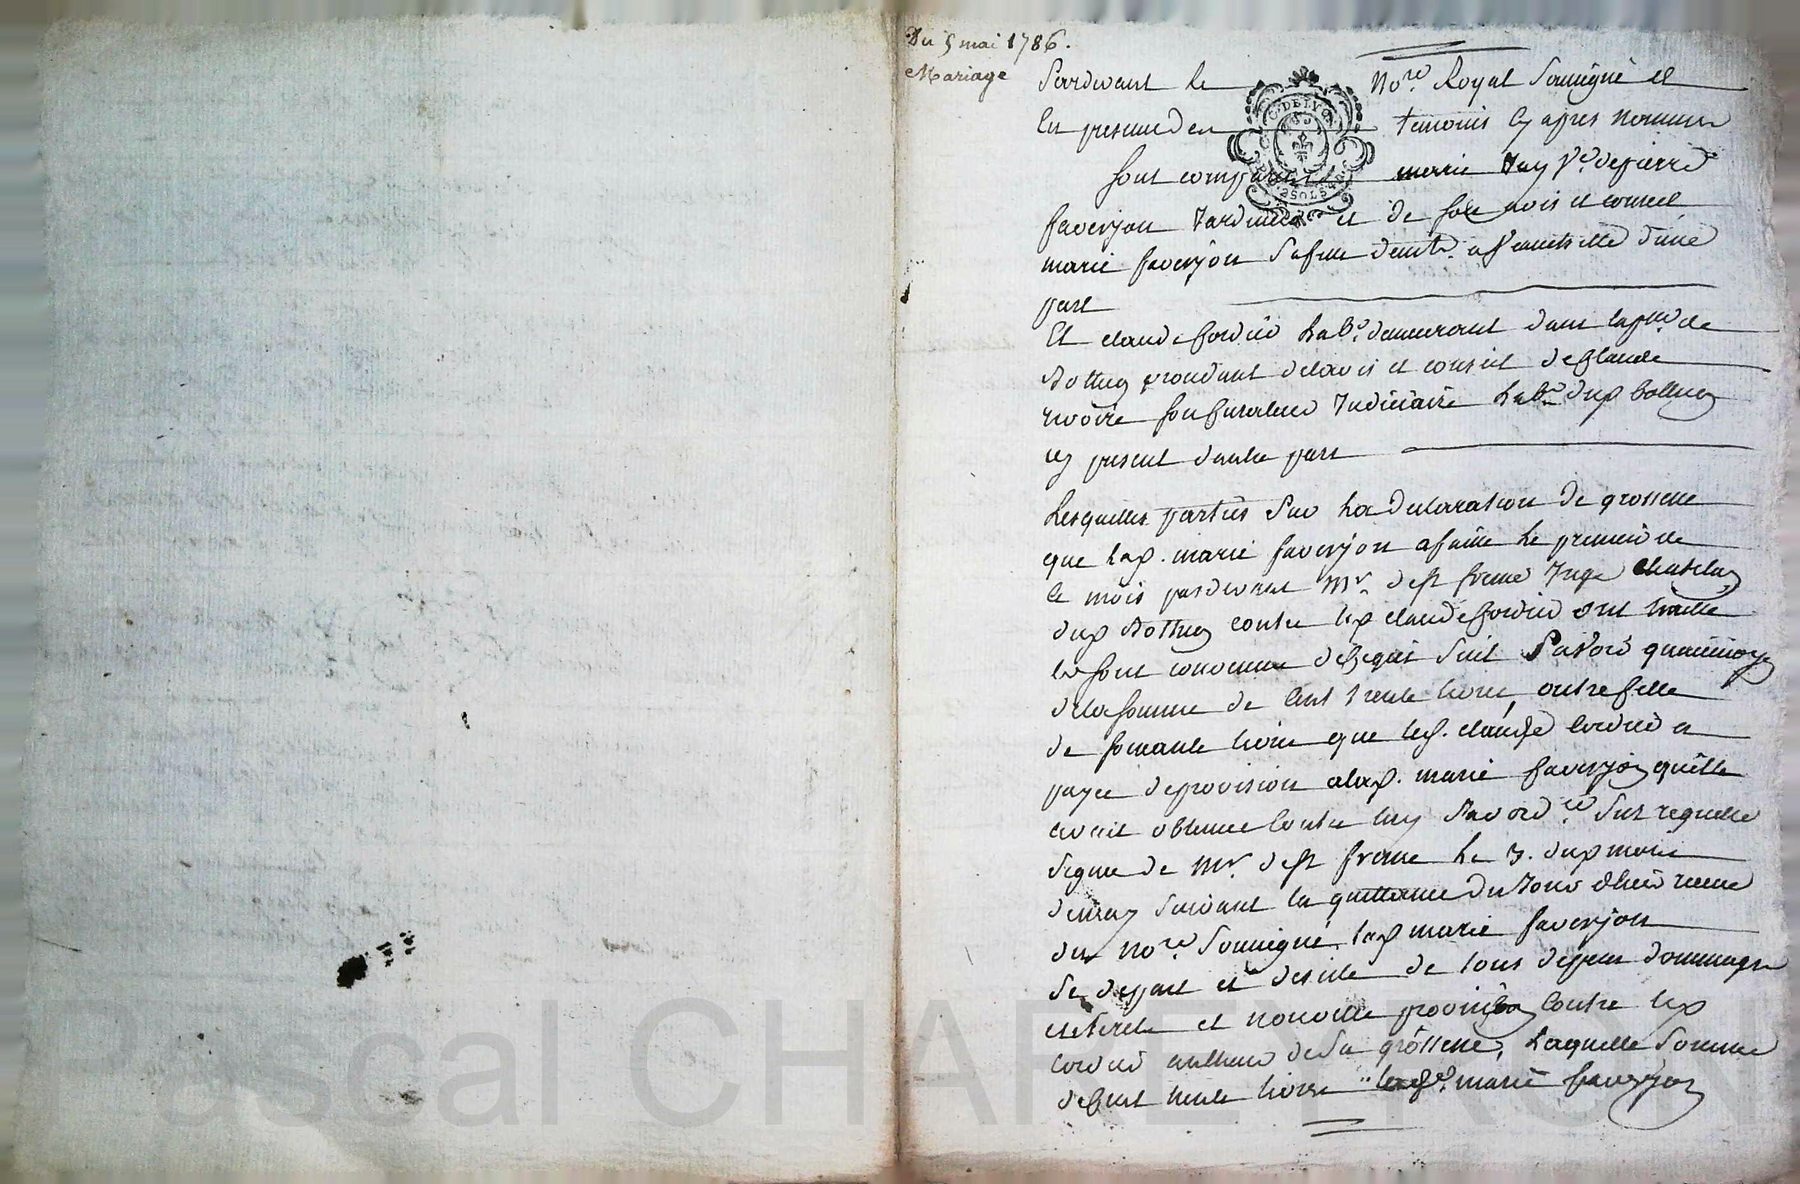 Du 5 mai 1786.
Mariage
Pardevant le No.re Royal Soussigné et
En presence des temoins cy apres nommes
Sont comparus marie Jay V.e de pierre
faverjon Jardinier et de son avis et conseil
marie faverjon Sa fille dem.t a d'une
part
Et claude Cordier Lab.r demeurant dans la p.sse de
Bothey procedant de l'avis et conseil de Claude
rivoire son Curateur Judiciaire Lab.r dud Bothey
cy present d'autre part
Lesquelles parties Sur La Declaration de grossesse
que lad. marie faverjon a faitte le premier de
ce mois pardevant Mr. de st ferme Juge Chatelain
dud Bothey contre led claude Cordier ont traitté
et sont convenus de ce qui suit Savoir quau moyen
de la somme de Cent trente livres, outre Celle
de soixante livres que led. claude Cordier a
payée de provision a lad. marie faverjon quelle
avait obtenue Contre luy Par ord.ce Sur requette
Signée de Mr. de st ferme Le 3. dud mois
de may suivant la quittance du Jour d'hier recue
du No.re Soussigné, lad marie faverjon
Se depart et desiste de tous depens dommages
interets et nouvelle provision Contre led
Cordier au sujet de Sa grossesse, Laquelle Somme
de Cent trente livres lad. marie faverjon
C. DE LYON
2 SOLS
Pascal CHAREYRON